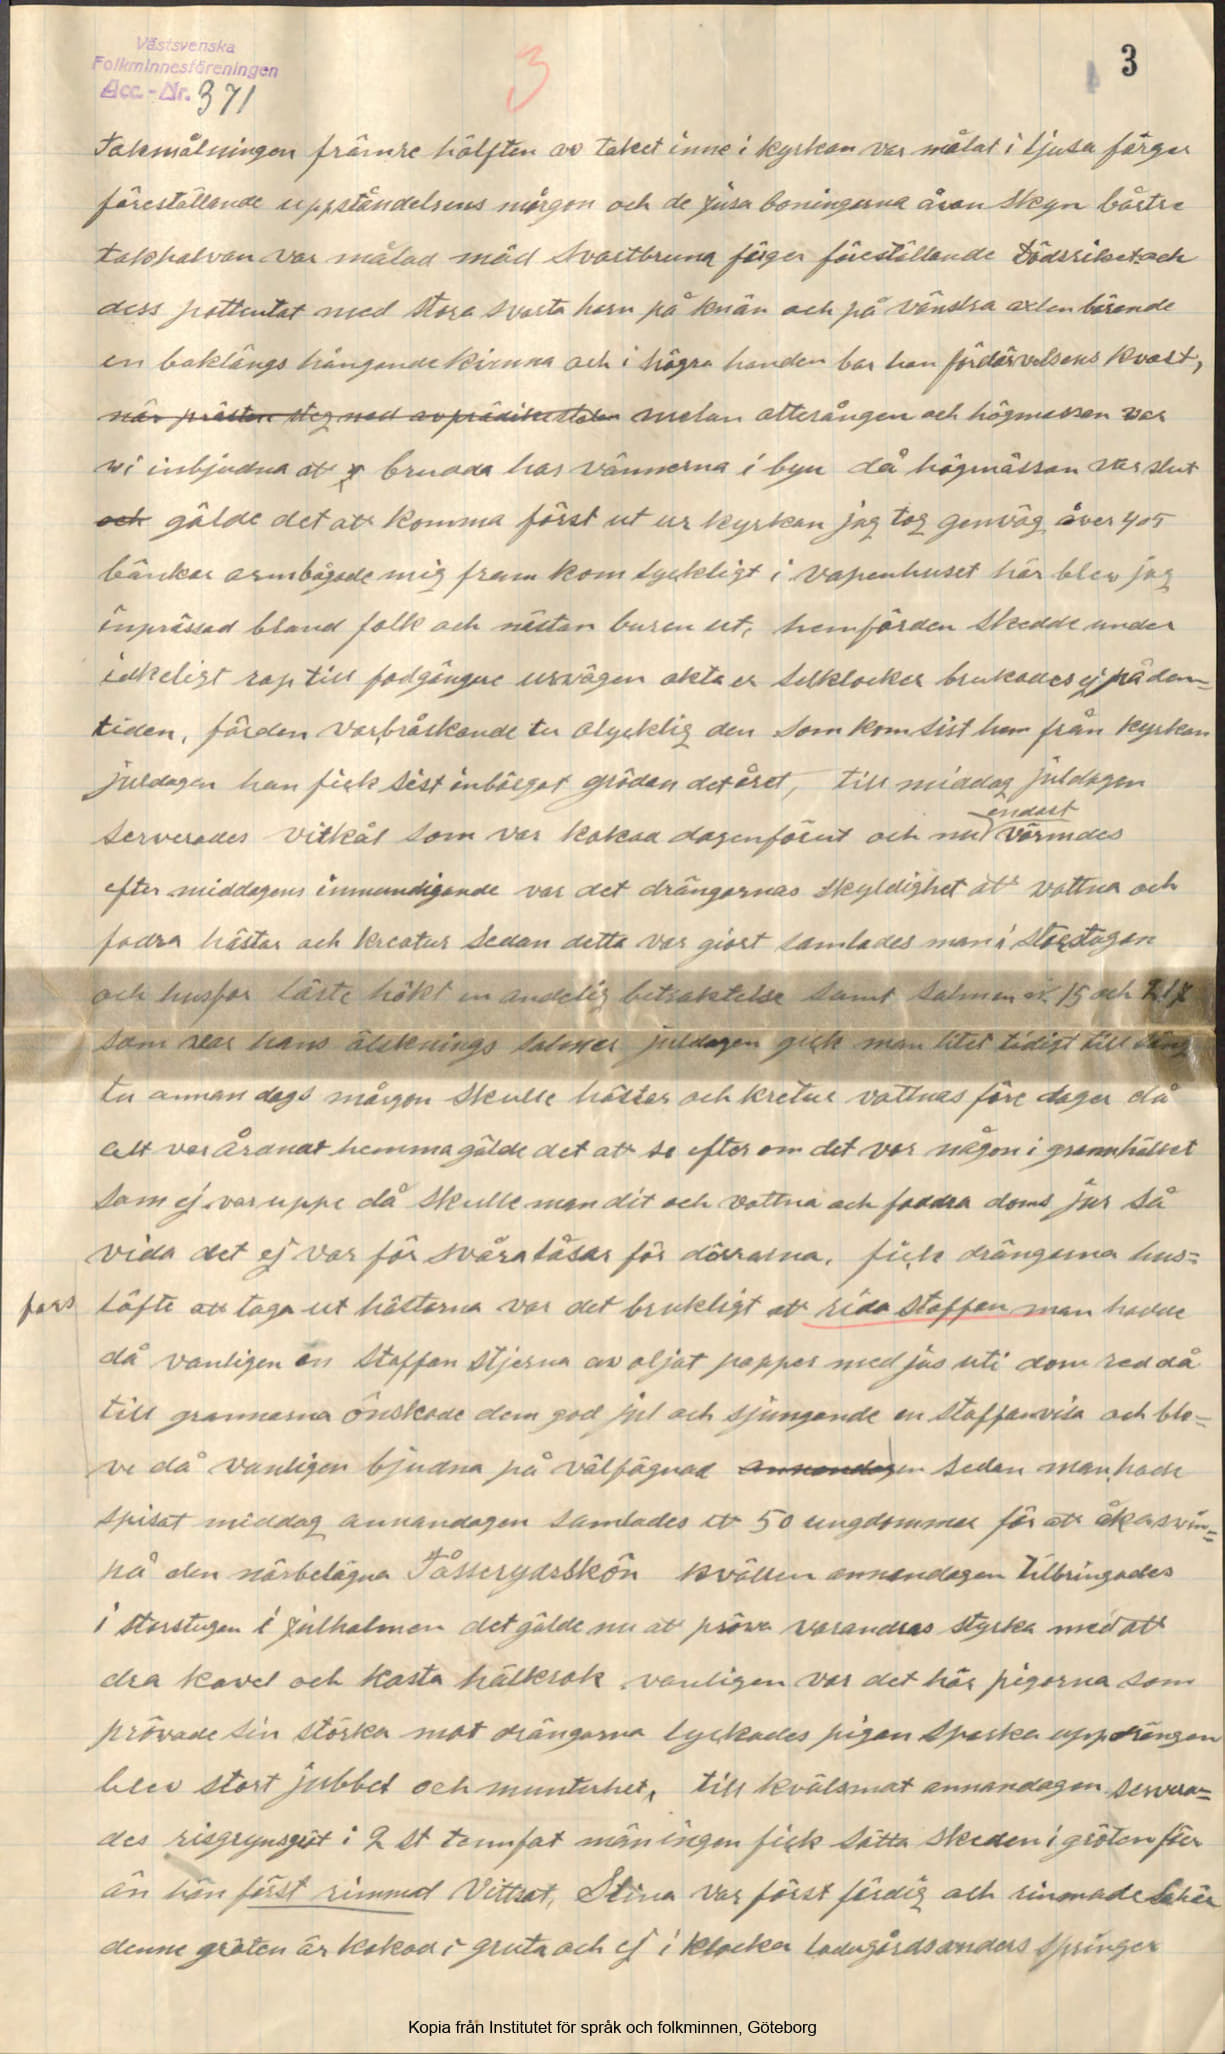 Västsvenska
Folkminnesföreningen
Acc.-Nr. 371
3
3
Takmålningen främre hälften av taket inne i kyrkan var målat i ljusa färger
föreställande uppståndelsens mårgon och de jusa boningarna åvan skyn bårtre
takhalvan var målad mäd svartbruna färger föreställande Dödsriket och
dess pottentat med stora svarta horn på knän och på vänstra axlen bärande
en baklängs hängande kvinna och i högra handen bar han fördärvelsens kvast,
när prästen steg ned av prädikestolen melan ottesången och högmessan var
vi inbjudna at bruada hos vännerna i byn då högmässan var slut
och gälde det att komma först ut ur kyrkan jag tog genväg över 4 o 5
bänkar armbågade mig fram kom lyckligt i vapenhuset här blev jag
inprässad bland folk och nästan buren ut, hemfärden skedde under
idkeligt rop till fodgängare urvägen akta er selklocker brukades ej på den=
tiden, färden var bråskande ty olycklig den som kom sist hem från kyrkan
juldagen han fick sist inbärgat grödan det året, till middag juldagen
endast
serverades vitkål som var kokad dagenförut och nu värmdes
efter middagens inmundigande var det drängarnas skyldighet at vattna och
fodra hästar och kreatur sedan detta var giort samlades man i storstugan
och husfar läste högt en andelig betraktelse samt salmen nr. 15 och 217
som var hans älsknings salmer juldagen gick man litet tidigt till säng
ty annan dags mårgon skulle hästar och kretur vattnas före dager då
alt var årdnat hemma gälde det att se efter om det var någon i grannhället
som ej var uppe då skulle man dit och vattna och foddra doms jur så
vida det ej var för svåra låsar för dörrarna, fick drängarna hus=
fars löfte att taga ut hästarna var det brukligt at rida staffan man hadde
då vanligen en staffan stjerna av oljat papper med jus uti dom red då
till grannarna önskade dem god jul och sjungande en staffanvisa och ble=
ve då vanligen bjudna på välfägnad annandagen sedan man hade
spisat middag annandagen samlades et 50 ungdommar för at åka svin=
på den närbelägna Tåsserydsskön kvällen annandagen tilbringades
i storstugan i julhalmen det gälde nu at pröva varandras styrka med att
dra kavel och kasta hälkrok vanligen var det här pigorna som
prövade sin störka mot drängarna lyckades pigan sparka upp drängen
blev stort jubbel och munterhet, till kvälsmat annandagen servera=
des risgrynsgröt i 2 st tennfat män ingen fick sätta skeden i gröten förr
än hän först rimmed Vittsat, Stina var först färdig och rimmade såhär
denne gröten är kokad i gruta och ej i klocka ladugårdsanders springer
Kopia från Institutet för språk och folkminnen, Göteborg